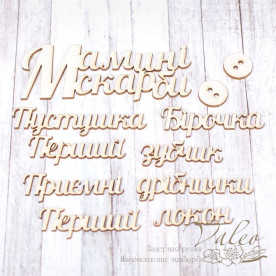 Мамині
скарби
Пустушка Бірочка
Перший зубчик
Приємні дрібнички
Перший локон
Valeo
Лазерна різка